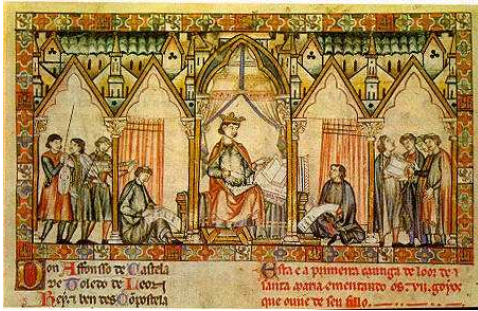 Don Affonsso de Castela
de Toledo de Leon
Rey e ben des Conpostela
Esta e a primeira cantiga de loor de
santa maria ementando os. vij. goyos
que ouue de seu fillo.